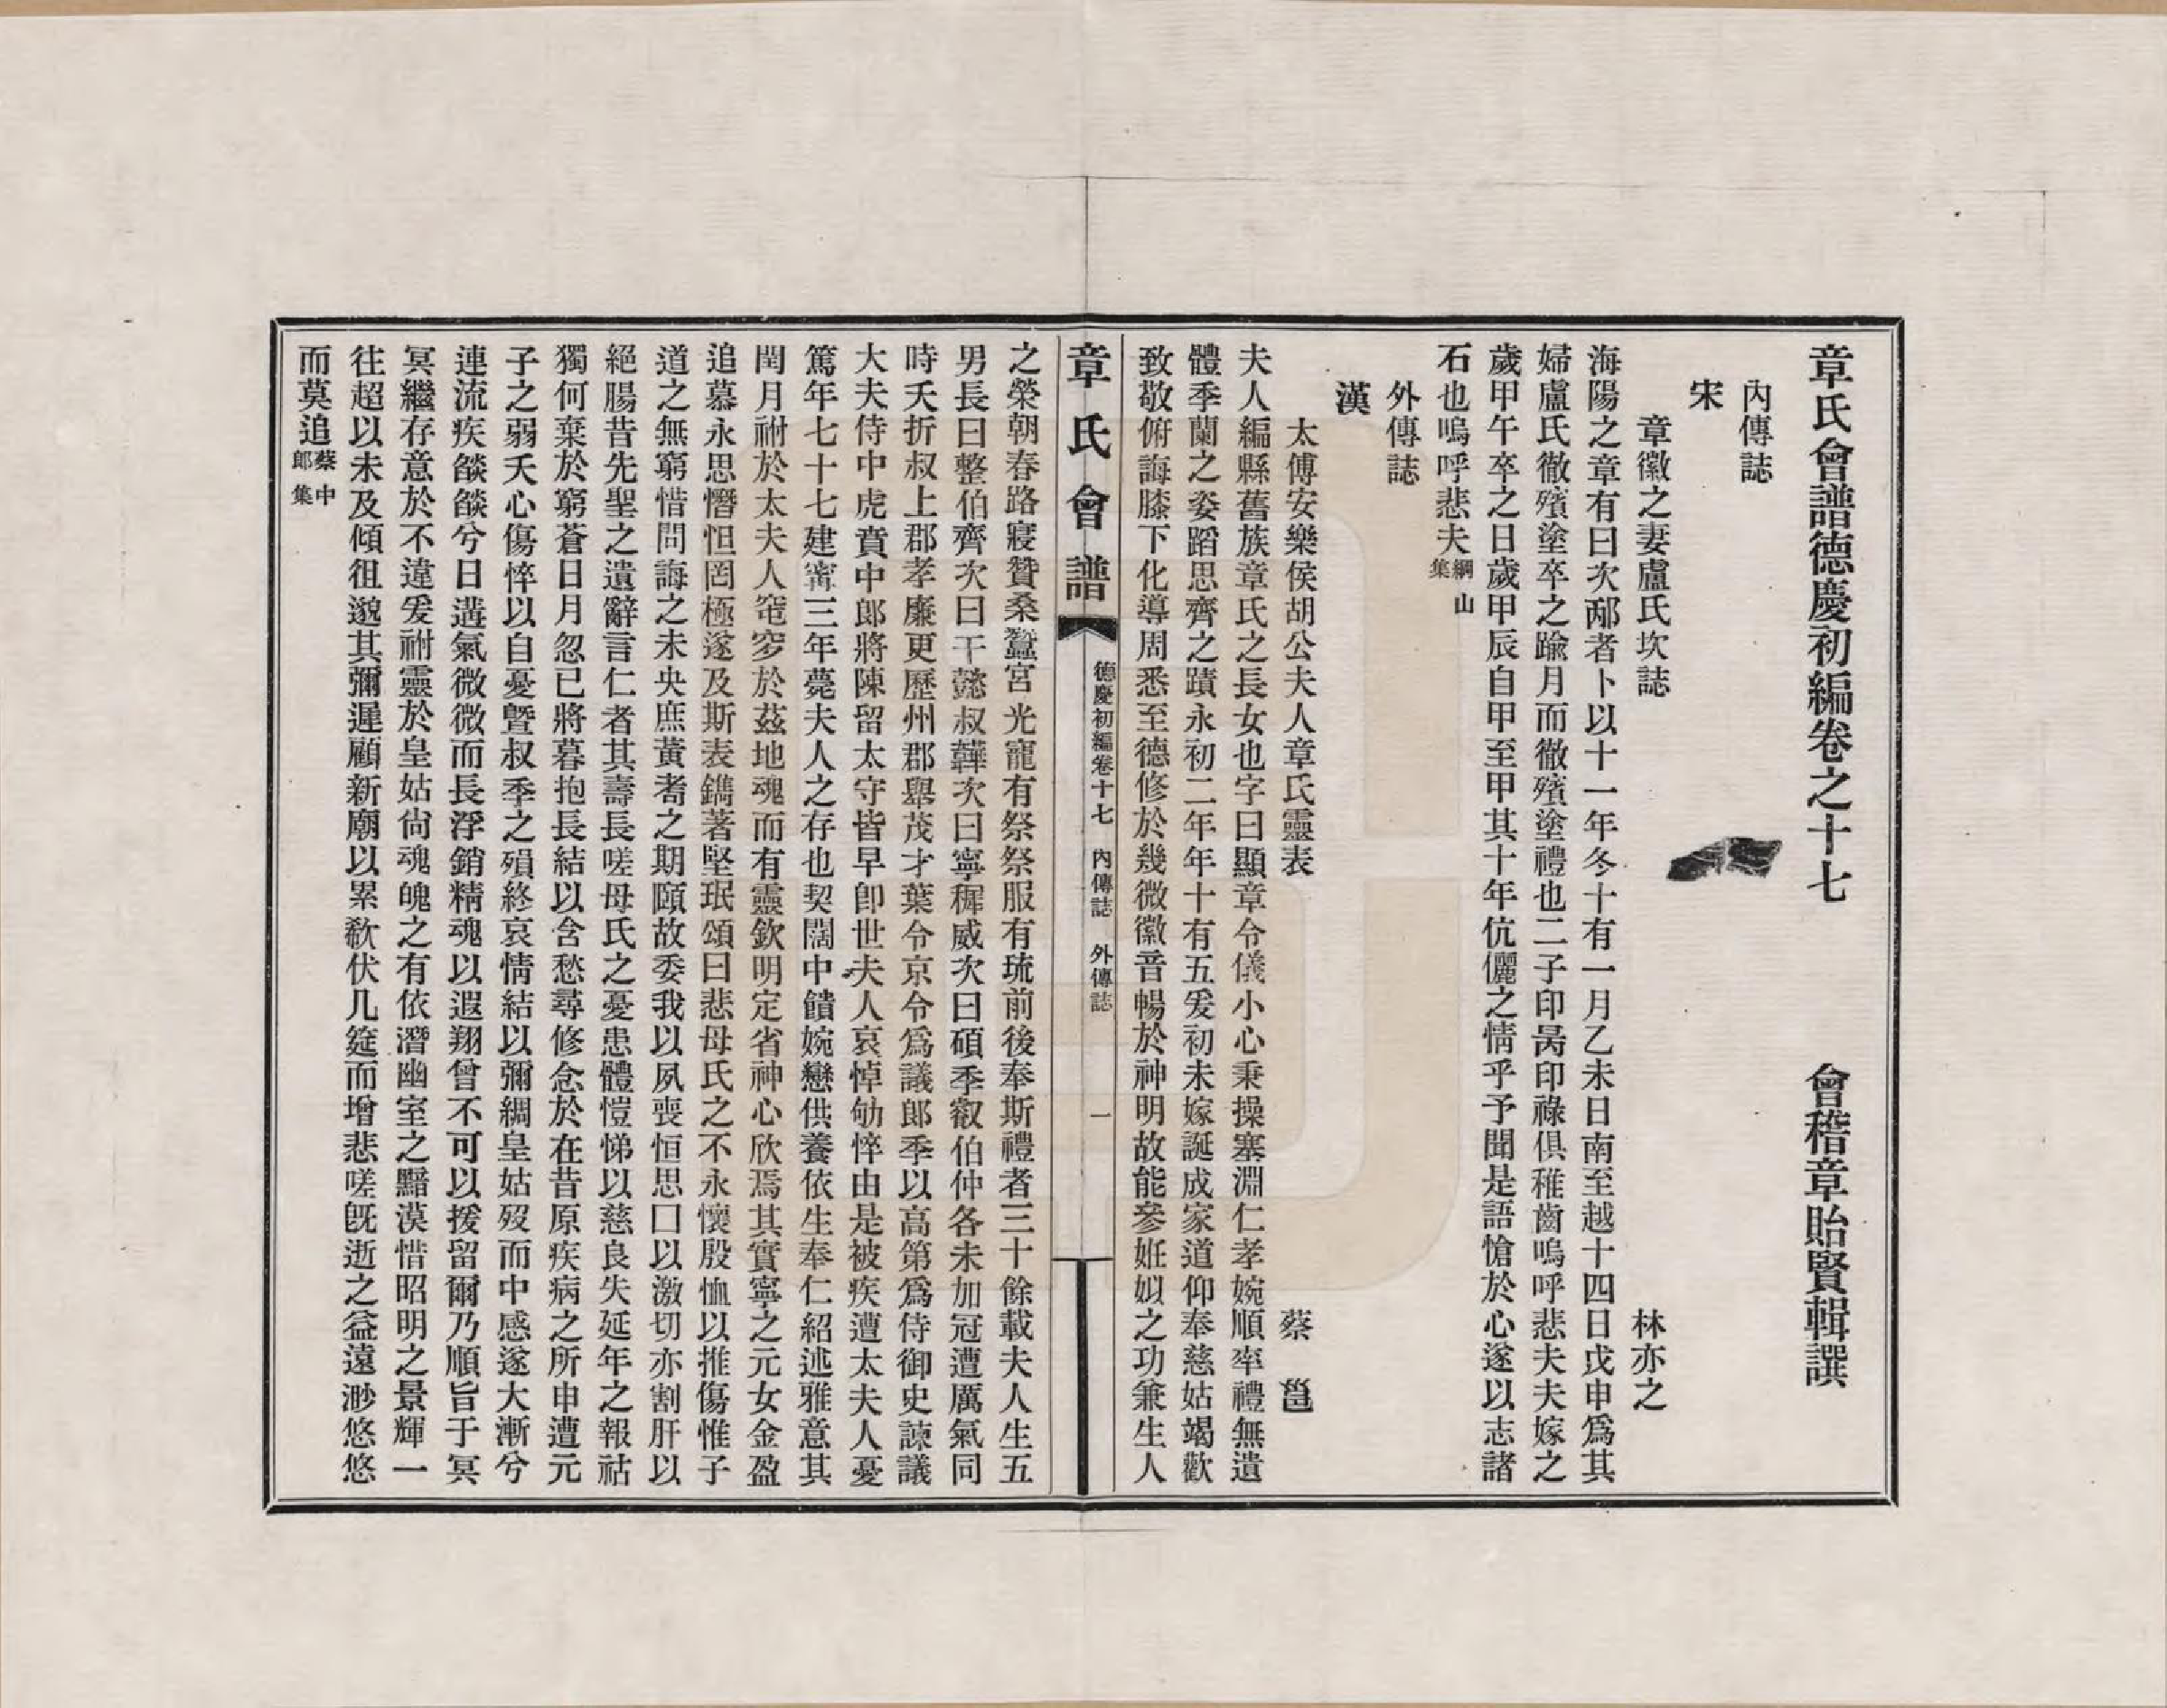 章氏會譜德慶初編卷之十七　會稽章貽賢輯譔
內傳誌
宋
章徽之妻盧氏坎誌　林亦之
海陽之章有曰次邴者卜以十一年冬十有一月乙未日南至越十四日戊申爲其
婦盧氏徹殯塗卒之踰月而徹殯塗禮也二子印昺印祿俱稚齒嗚呼悲夫夫嫁之
歲甲午卒之日歲甲辰自甲至甲其十年伉儷之情乎予聞是語愴於心遂以志諸
石也嗚呼悲夫網山集
外傳誌
漢
太傅安樂侯胡公夫人章氏靈表　蔡邕
夫人編縣舊族章氏之長女也字曰顯章令儀小心秉操塞淵仁孝婉順率禮無遺
體季蘭之姿蹈思齊之蹟永初二年年十有五爰初來嫁誕成家道仰奉慈姑竭歡
致敬俯誨膝下化導周悉至德修於幾微徽音暢於神明故能參姙姒之功兼生人
章氏會譜
德慶初編卷十七　內傳誌　外傳誌
一
之榮朝春路寢贊桑蠶宮光寵有祭祭服有琉前後奉斯禮者三十餘載夫人生五
男長曰整伯齊次曰千懿叔韡次曰寧稺威次曰碩季叡伯仲各未加冠遭厲氣同
時夭折叔上郡孝廉更歷州郡舉茂才葉令京令爲議郎季以高第爲侍御史諫議
大夫侍中虎賁中郎將陳留太守皆早卽世夫人哀悼劬悴由是被疾遭太夫人憂
篤年七十七建寧三年薨夫人之存也契闊中饋婉戀供養依生奉仁紹述雅意其
閏月祔於太夫人窀穸於茲地魂而有靈欽明定省神心欣焉其實寧之元女金盈
追慕永思憯怛罔極遂及斯表鐫著堅珉頌曰悲母氏之不永懷殷恤以推傷惟子
道之無窮惜問誨之未央庶黃耇之期頤故委我以夙喪恒思囗以激切亦割肝以
絕腸昔先聖之遺辭言仁者其壽長嗟母氏之憂患體愷悌以慈良失延年之報祜
獨何棄於窮蒼日月忽已將暮抱長結以含愁尋修念於在昔原疾病之所申遭元
子之弱夭心傷悴以自憂曁叔季之殞終哀情結以彌綢皇姑歿而中感遂大漸兮
連流疾燄燄兮日遘氣微微而長浮銷精魂以遐翔曾不可以援留爾乃順旨于冥
冥繼存意於不違爰祔靈於皇姑尙魂魄之有依潛幽室之黯漠惜昭明之景輝一
往超以未及傾徂邈其彌遲顧新廟以累欷伏几筵而增悲嗟旣逝之益遠渺悠悠
而莫追蔡中郎集